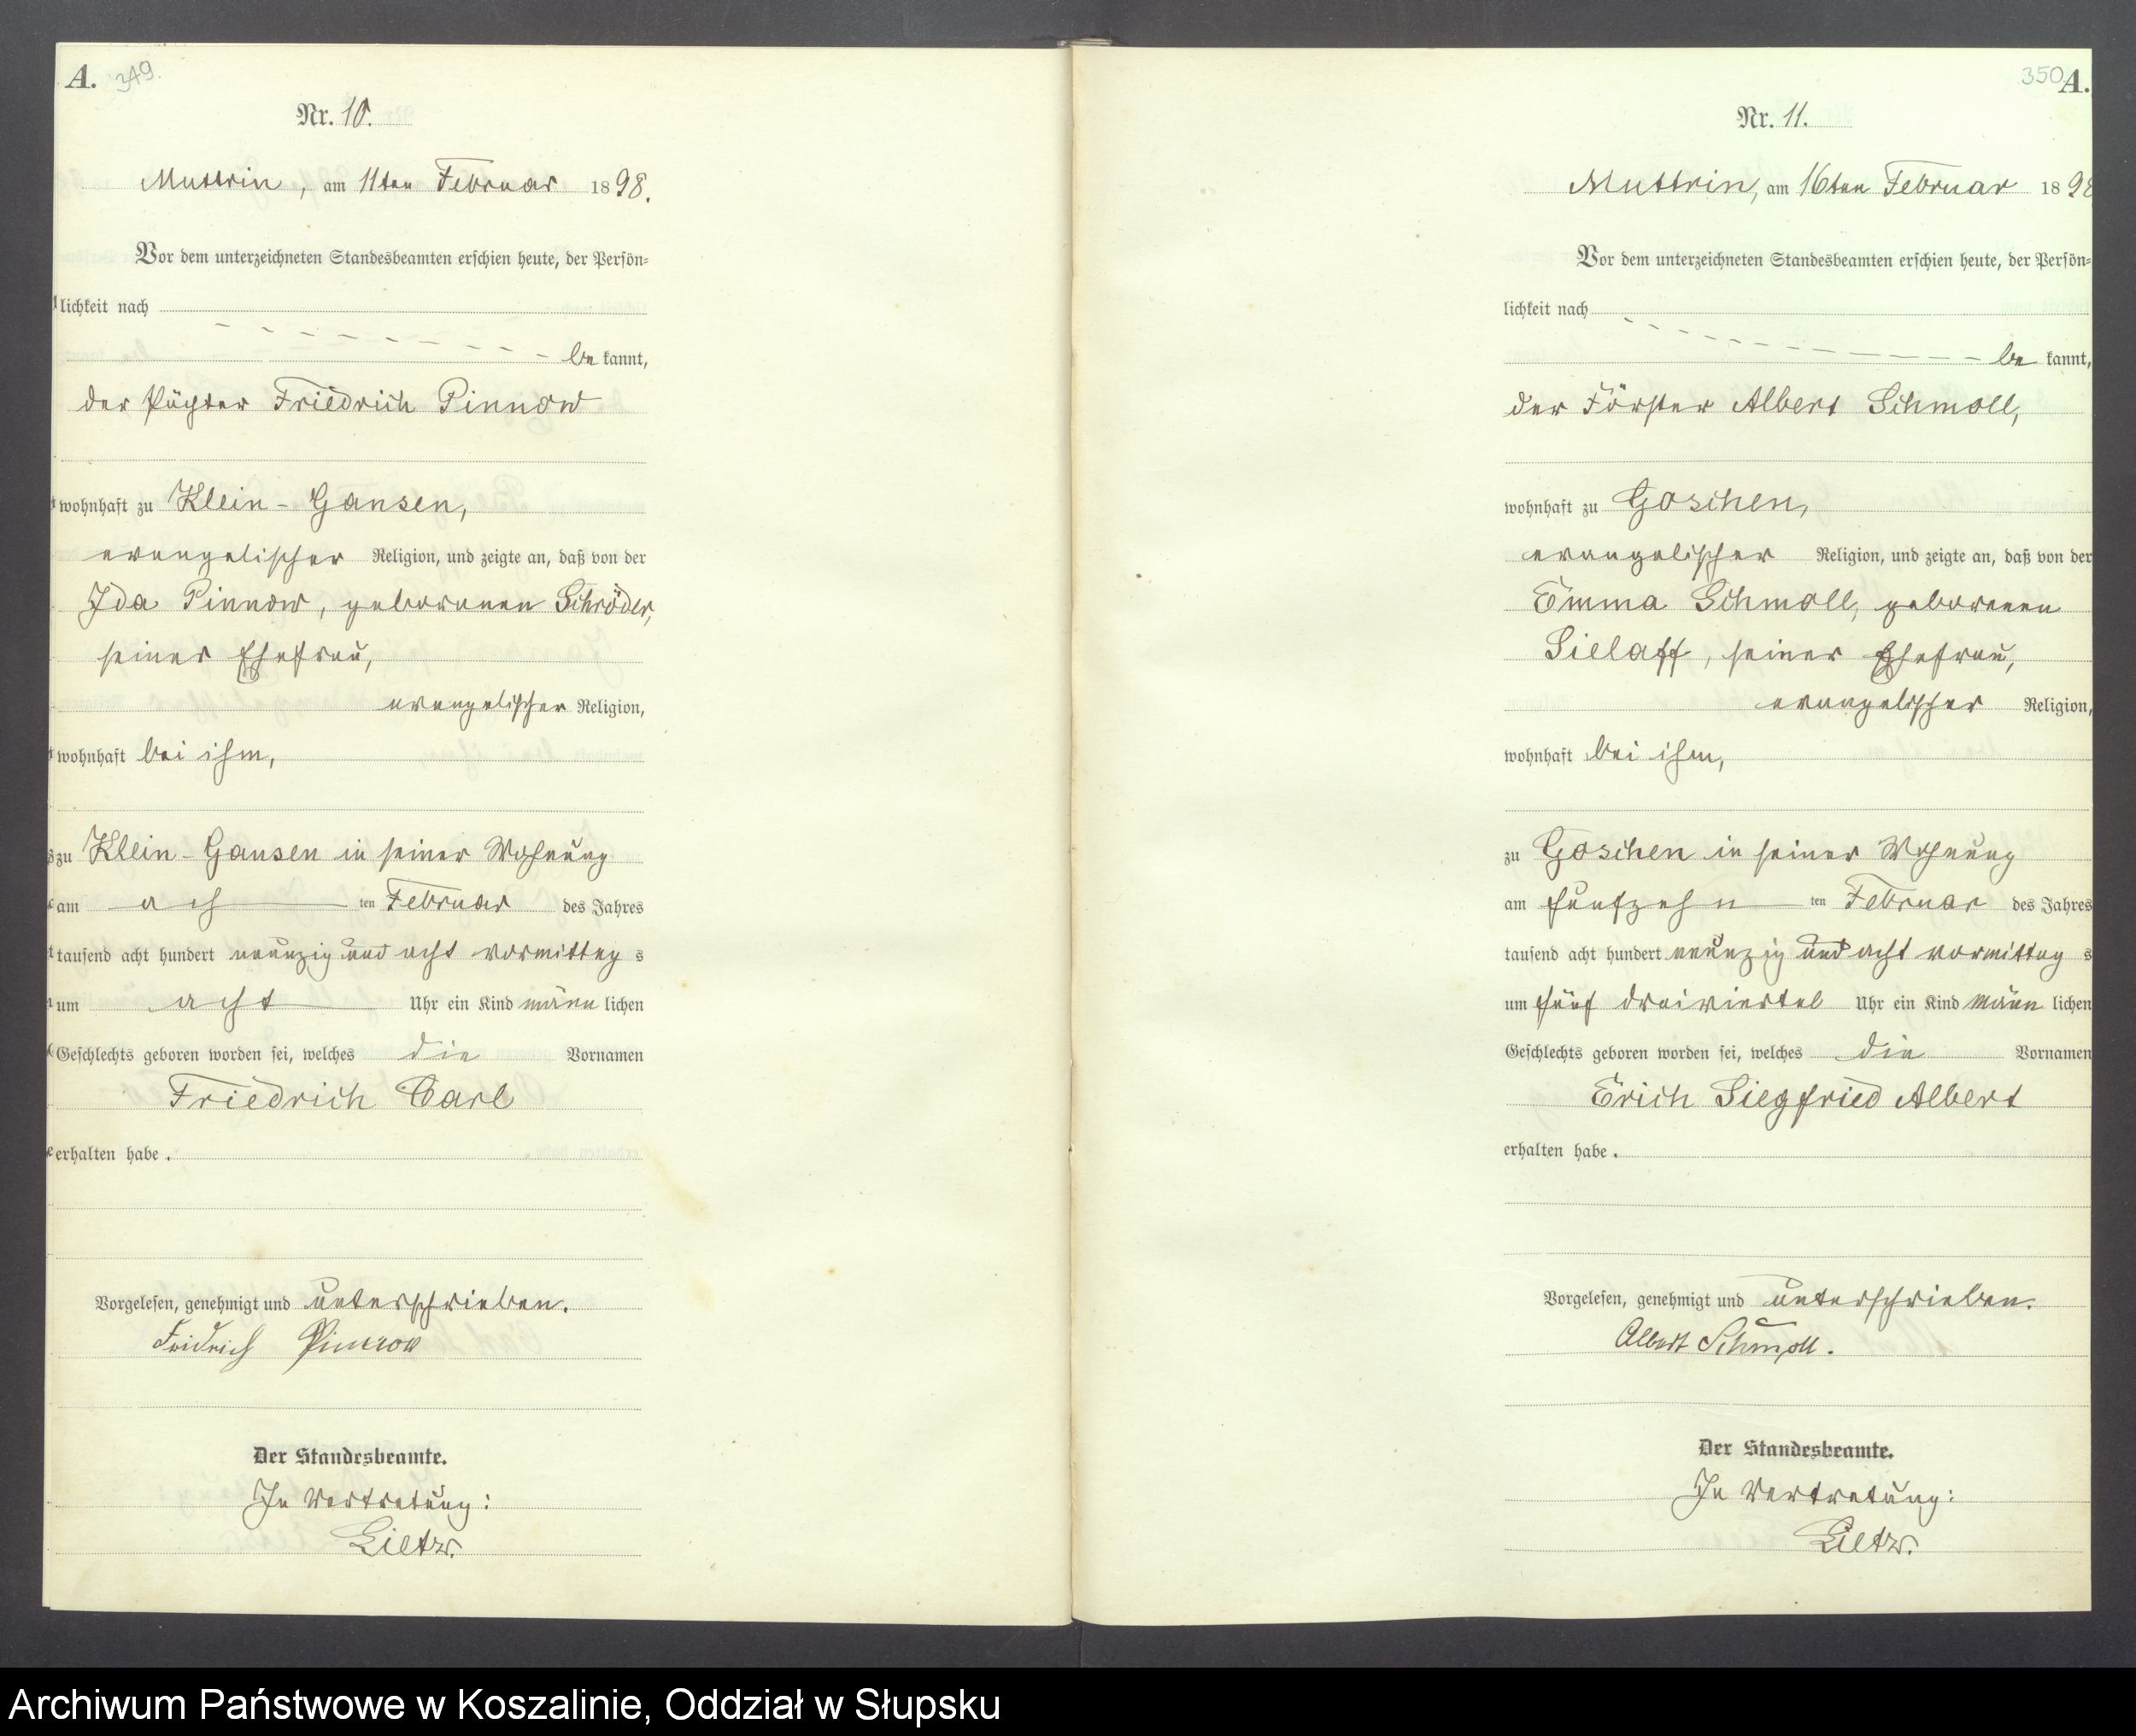 A. 349.
Nr. 10.
Muttrin, am 11ten Februar 1898.
Vor dem unterzeichneten Standesbeamten erschien heute, der Persön=
lichkeit nach
be kannt,
der Pächter Friedrich Pinnow
wohnhaft zu Klein-Gansen,
evangelischer Religion, und zeigte an, daß von der
Ida Pinnow, geborenen Schröder,
seiner Ehefrau,
evangelischer Religion,
wohnhaft bei ihm,
zu Klein-Gansen in seiner Wohnung
am ach ten Februar des Jahres
tausend acht hundert neunzig und acht vormittag s
um acht Uhr ein Kind männ lichen
Geschlechts geboren worden sei, welches die Vornamen
Friedrich Carl
erhalten habe.
Vorgelesen, genehmigt und unterschrieben.
Fridrich Pinnow
Der Standesbeamte.
In Vertretung:
Lietz.
350 A.
Nr. 11.
Muttrin, am 16ten Februar 1898
Vor dem unterzeichneten Standesbeamten erschien heute, der Persön=
lichkeit nach
be kannt,
der Förster Albert Schmoll,
wohnhaft zu Goschen,
evangelischer Religion, und zeigte an, daß von der
Emma Schmoll, geborenen
Sielaff, seiner Ehefrau,
evangelischer Religion,
wohnhaft bei ihm,
zu Goschen in seiner Wohnung
am fünfzehn ten Februar des Jahres
tausend acht hundert neunzig und acht vormittag s
um fünf dreiviertel Uhr ein Kind männ lichen
Geschlechts geboren worden sei, welches die Vornamen
Erich Siegfried Albert
erhalten habe.
Vorgelesen, genehmigt und unterschrieben.
Albert Schmoll.
Der Standesbeamte.
In Vertretung:
Lietz.
Archiwum Państwowe w Koszalinie, Oddział w Słupsku